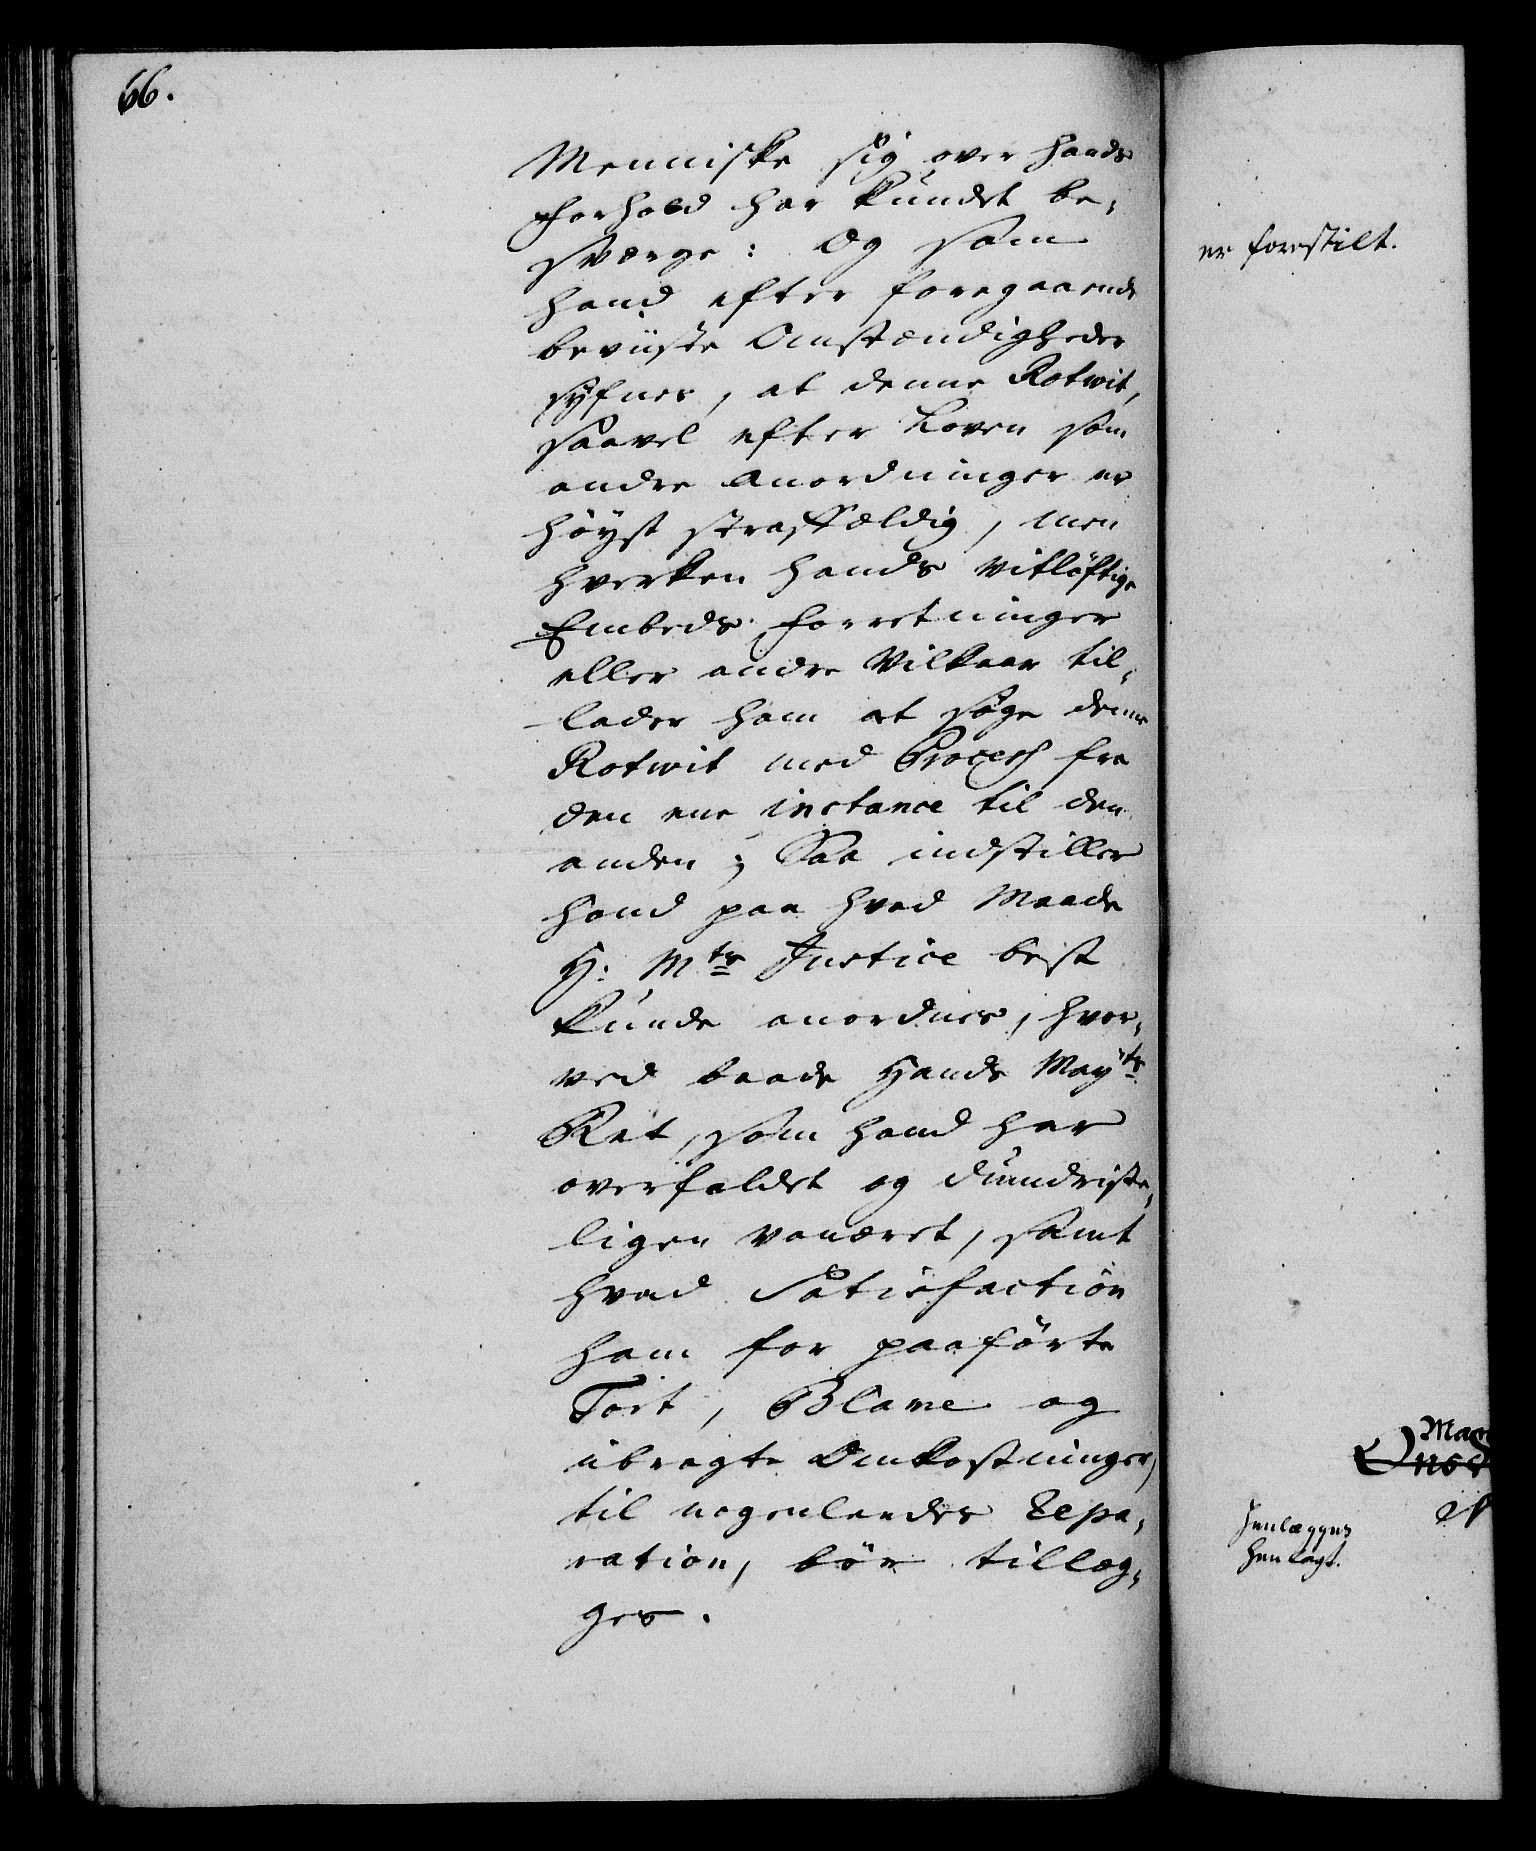 66.
Menniske sig over hands
forhold har kundet be-
sværge: Og som
hand efter foregaaende
beviiste Omstændigheder
syfnes, at denne Rotwit,
saavel efter Loven som
andre Anordninger er
høyst straffældig, men
hverken hands vitløftige
Embeds forretninger
eller andre Vilkaar til-
lader ham at søge denne
Rotwit med Process fra
den ene instance til den
anden; Saa indstiller
hand paa hvad Maade
H: Mts Justice best
kunde anordnes, hvor-
ved baade Hands Mayts
Ret, som hand har
overfaldet og dumdriste-
ligen vanæret, samt
hvad Satisfaction
ham for paaførte
Tort, Blame og
ibragte Omkostninger,
til nogenlundes Repa-
ration, bør tillæg-
ges.
er forestilt.
Henlægges
henlagt.